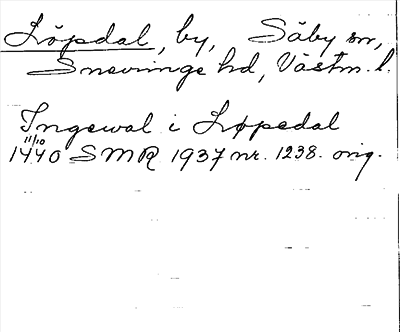 Löpdal, by, Säby sn,
Snevringe hd, Västm. l.
Ingewal i Løpedal
11/10
1440 SMR 1937 nr. 1238. orig.